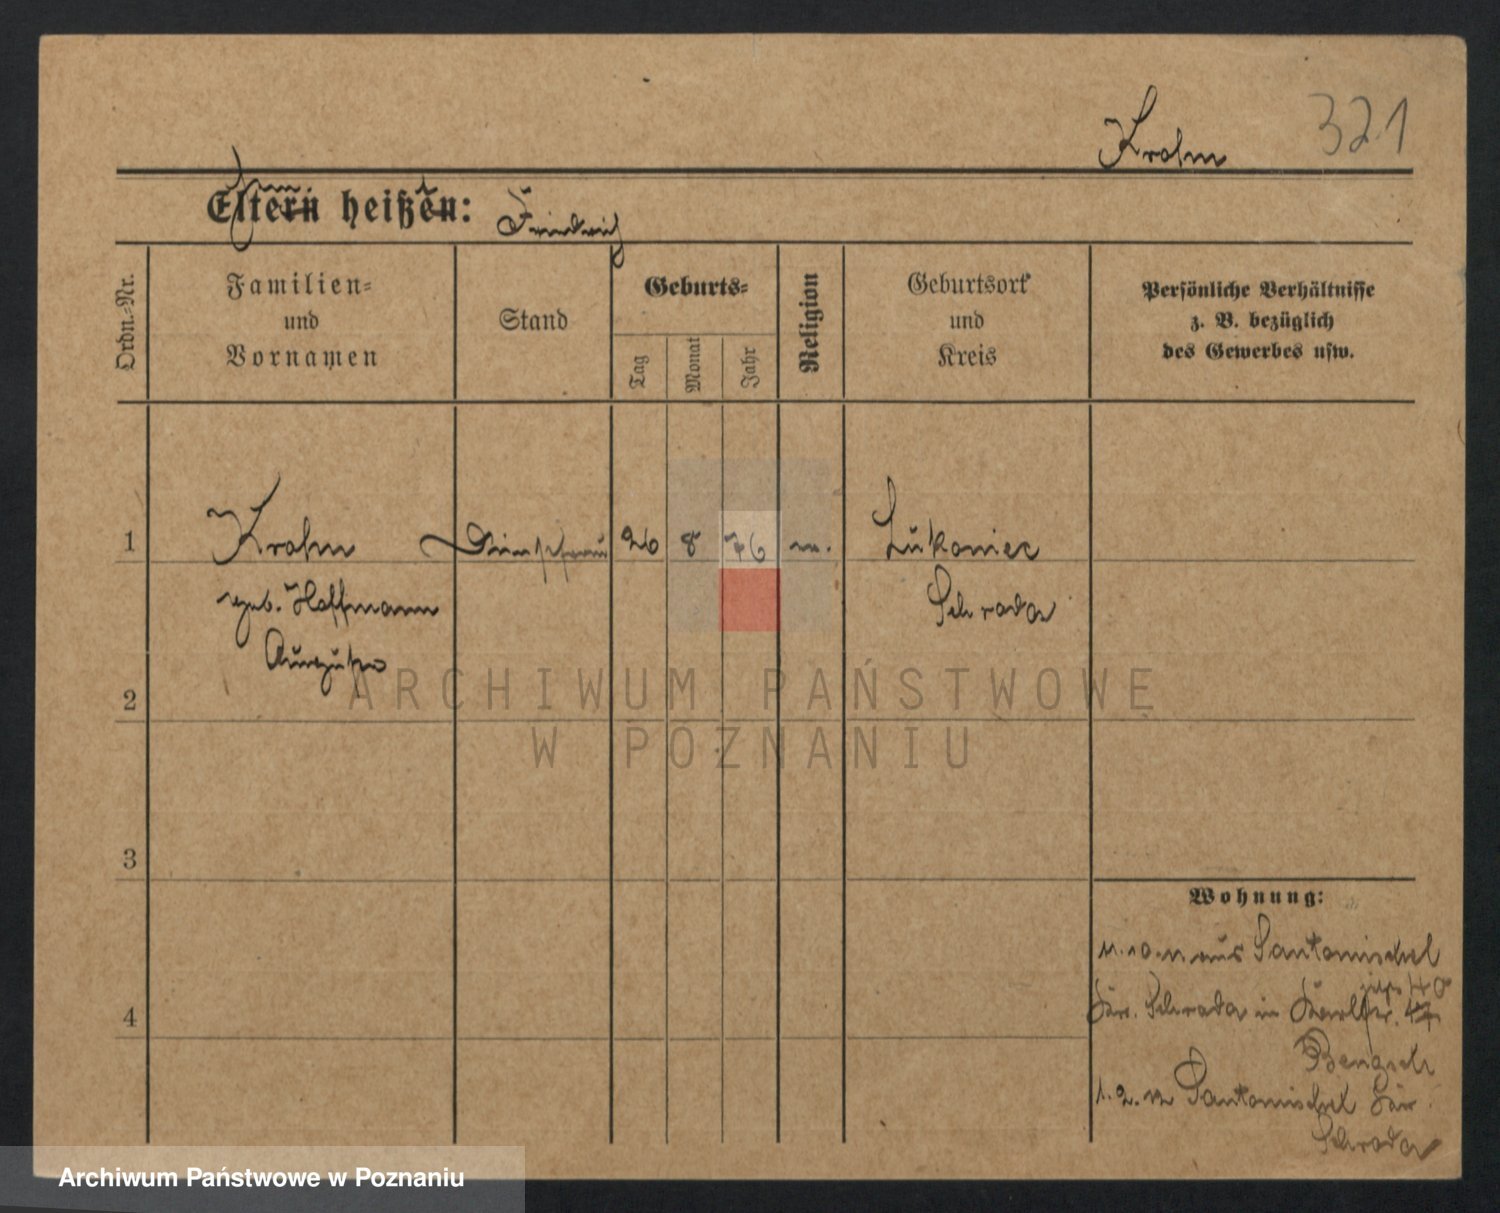 321
Krahn
Eltern heißen:
Friedrich
Ordn.-Nr.
Familien-
und
Vornamen
Stand
Geburts-
Tag
Monat
Jahr
Religion
Geburtsort
und
Kreis
Persönliche Verhältnisse
z. B. bezüglich
des Gewerbes usw.
1
Krahn
26 8 76
geb. Hoffmann
Schroda
2
3
4
Wohnung:
aus Santomischel
Schroda in
Santomischel
Schroda
ARCHIWUM PAŃSTWOWE
W POZNANIU
Archiwum Państwowe w Poznaniu